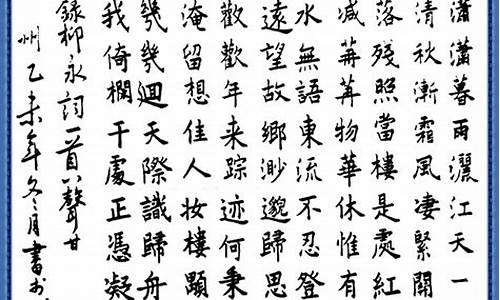 瀟瀟暮雨灑江天一
清秋漸霜風凄緊關
落殘照當樓是處紅
减苒苒物華休惟有
水無語東流不忍登
遠望故鄉渺邈歸思
歡歡年来踪迹何秉
淹留想佳人妆樓顒
幾幾迴天際識歸舟
我倚欄干處正憑凝
錄柳永詞一首八聲甘
州乙未年冬月書於